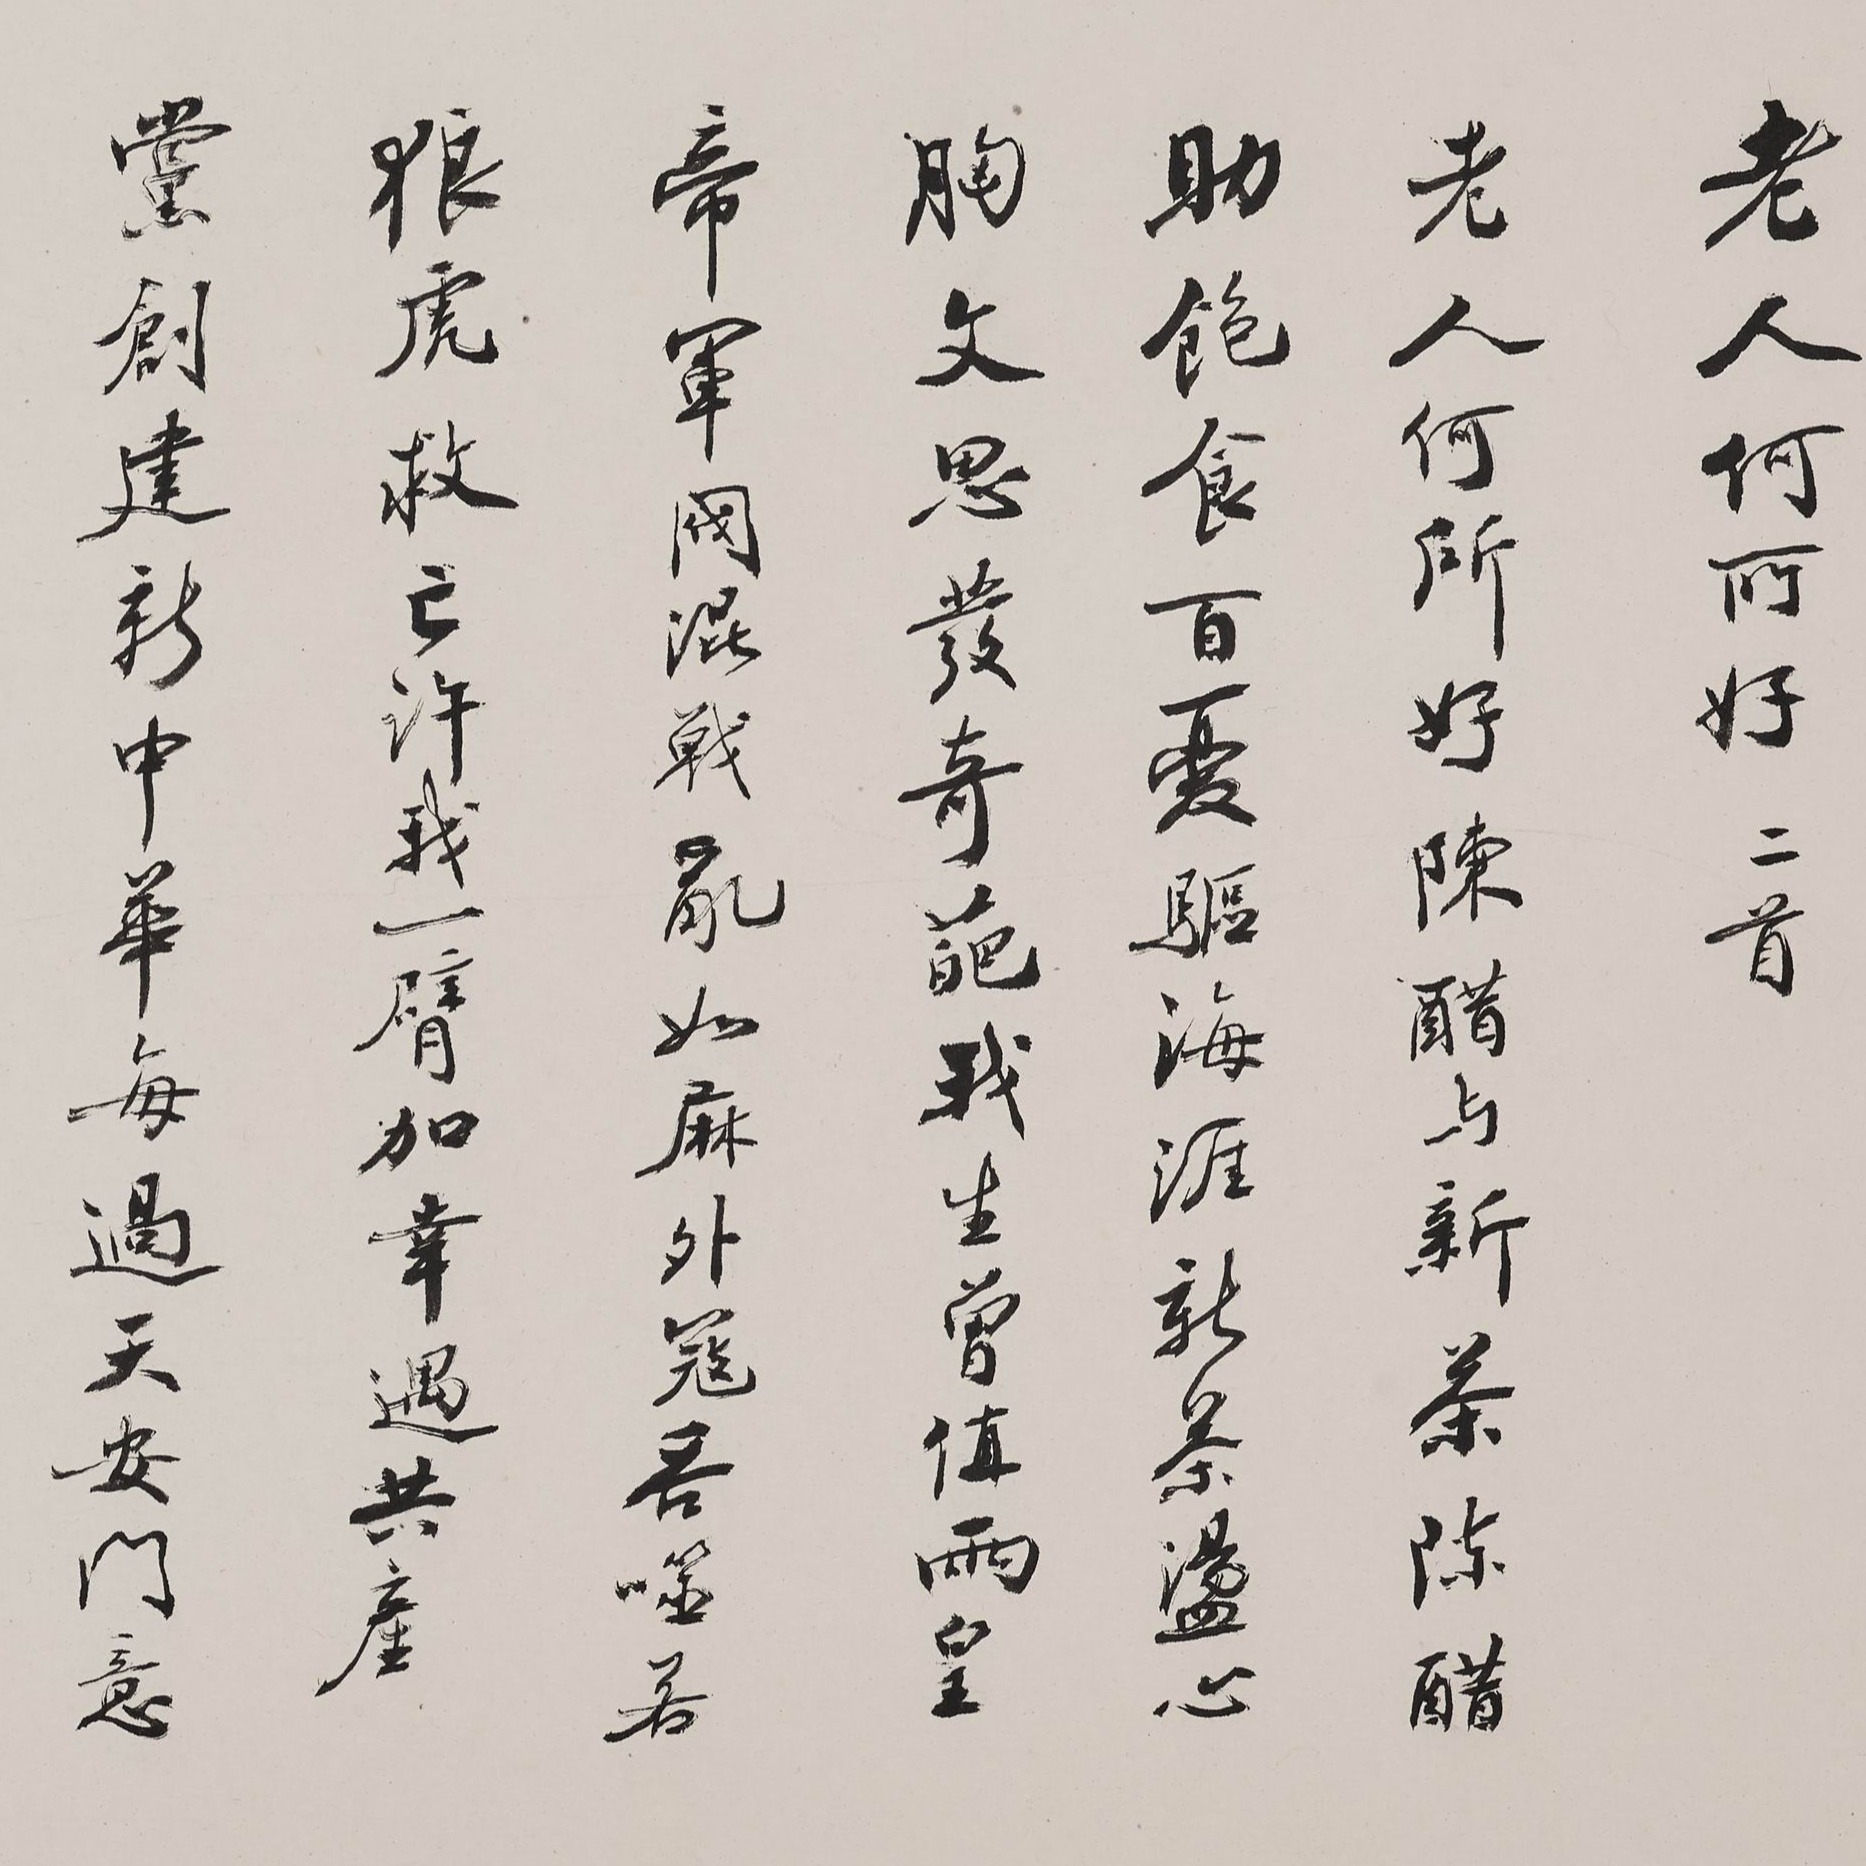 老人何所好 二首
老人何所好陳醋与新茶陈醋
助飽食百憂驅海涯新茶盪心
胸文思發奇葩我生曾值兩皇
帝軍閥混戰亂如麻外寇吞噬若
狼虎救亡许我一臂加幸遇共產
黨創建新中華每過天安門意